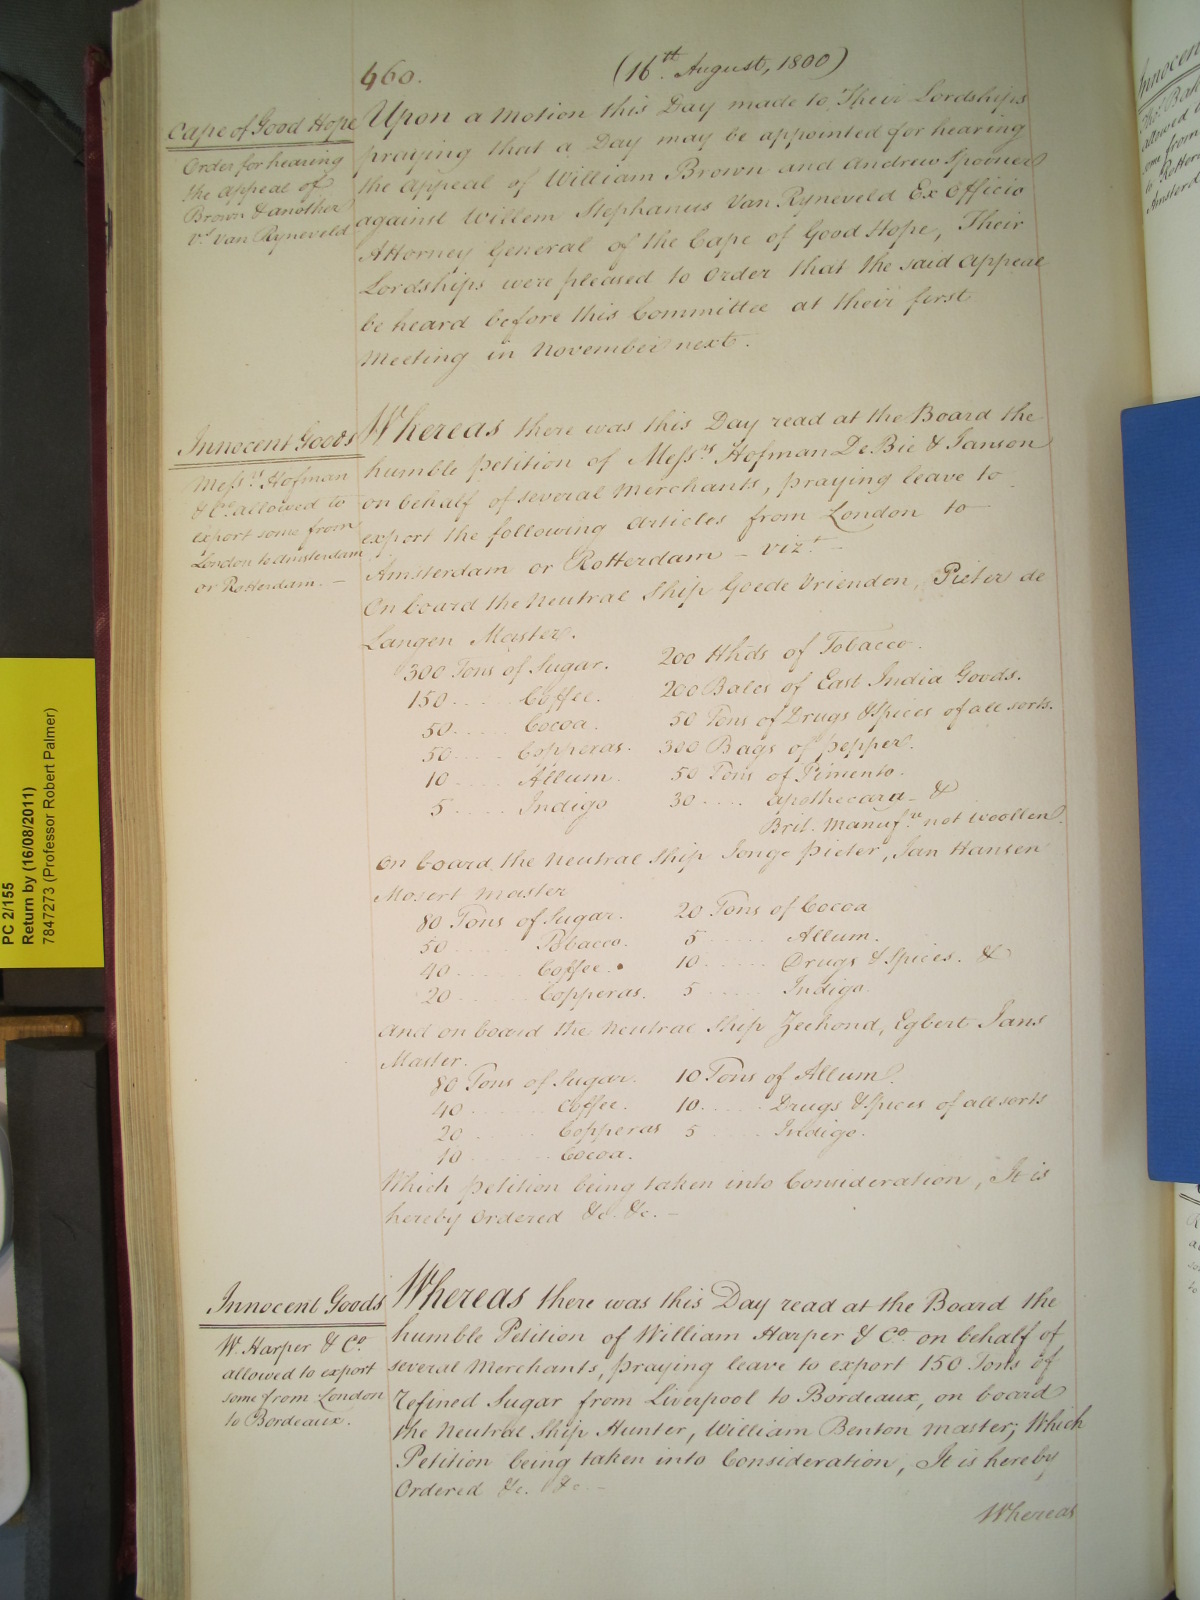 460.
(16th August, 1800)
Cape of Good Hope
Order for hearing
the appeal of
Brown & another
vs. Van Ryneveld
Upon a Motion this Day made to Their Lordships
praying that a Day may be appointed for hearing
the Appeal of William Brown and Andrew Spooner
against Willem Stephanus Van Ryneveld Ex Officio
Attorney General of the Cape of Good Hope, Their
Lordships were pleased to Order that the said Appeal
be heard before this Committee at their first
Meeting in November next.
Innocent Goods
Messrs. Hofman
& Co. allowed to
export some from
London to Amsterdam
or Rotterdam. —
Whereas there was this Day read at the Board the
humble Petition of Messrs Hofman De Bie & Janson
on behalf of several Merchants, praying leave to
export the following Articles from London to
Amsterdam or Rotterdam – vizt. –
On board the Neutral Ship Goede Vrienden, Pieter de
Langen Master.
300 Tons of Sugar. 200 Hhds of Tobacco.
150 ..... Coffee. 200 Bales of East India Goods.
50 ..... Cocoa. 50 Tons of Drugs & Spices of all sorts.
50 ..... Copperas. 300 Bags of pepper.
10 ..... Allum. 50 Tons of Pimento.
5 ..... Indigo 30 .... apothecara_ &
Brit. Manufre. not woollen.
On board the Neutral Ship Jonge Pieter, Jan Hansen
Mosert Master
80 Tons of Sugar. 20 Tons of Cocoa
50 ..... Tobacco. 5 ..... Allum.
40 ..... Coffee. 10 ..... Drugs & Spices. &
20 ..... Copperas. 5 ..... Indigo.
And on board the Neutral Ship Zeehond, Egbert Jans
Master.
80 Tons of Sugar. 10 Tons of Allum.
40 ..... Coffee. 10 ..... Drugs & Spices of all sorts
20 ..... Copperas 5 ..... Indigo.
10 ..... Cocoa.
Which Petition being taken into Consideration, It is
hereby Ordered &c. &c. –
Innocent Goods
W. Harper & Co.
allowed to export
some from London
to Bordeaux.
Whereas there was this Day read at the Board the
humble Petition of William Harper & Co. on behalf of
several Merchants, praying leave to export 150 Tons of
refined Sugar from Liverpool to Bordeaux, on board
the Neutral Ship Hunter, William Benton master; Which
Petition being taken into Consideration, It is hereby
Ordered &c. &c. –
Whereas
PC 2/155
Return by (16/08/2011)
7847273 (Professor Robert Palmer)
Innocen
Thos. Bak
allowed
some from
to Rotter
Amsterd